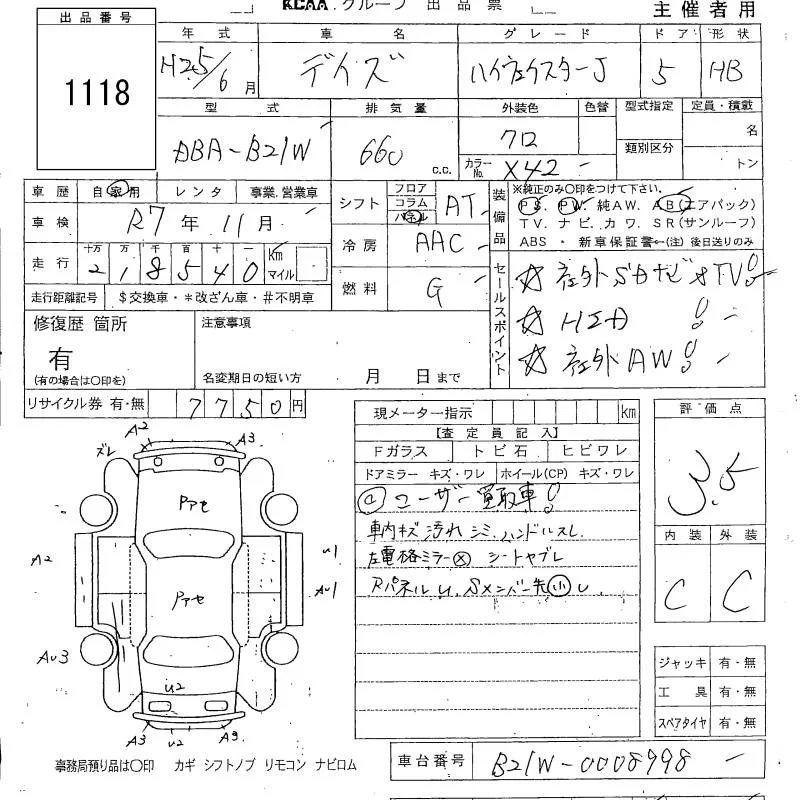 KCAA グループ 出品票
主催者用
出品番号
1118
年式 車名 グレード ドア 形状
H25/6月 デイズ ハイウェイスターJ 5 HB
型式 排気量 外装色 色替 型式指定 定員・積載
DBA-B21W 660 c.c. クロ 類別区分 名
カラーNo. X42 トン
車歴 自家用 レンタ 事業.営業車
車検 R7年11月
走行 十万 万 千 百 十 一 km マイル
218540
走行距離記号 $交換車・*改ざん車・#不明車
シフト フロア コラム パネル AT
冷房 AAC
燃料 G
装備品 ※純正のみ〇印をつけて下さい.
PS. PW. 純AW. AB(エアバック)
TV. ナビ. カワ. SR(サンルーフ)
ABS ・ 新車保証書←(注) 後日送りのみ
セールスポイント
☆ 社外SDナビ&TV!
☆ HID !
☆ 社外AW!
修復歴 箇所
有
(有の場合は〇印を)
注意事項
名変期日の短い方 月 日まで
リサイクル券 有・無 7750円
現メーター指示 km
【査定員記入】
Fガラス トビ石 ヒビワレ
ドアミラー キズ・ワレ ホイール(CP) キズ・ワレ
ユーザー買取車!
車内キズ 汚れ シミ.ハンドルスレ
左電格ミラー× シートヤブレ
RパネルU. Sメンバー先小U
評価点
3.5
内装 外装
C C
ジャッキ 有・無
工具 有・無
スペアタイヤ 有・無
A2 A3
ズレ
Pアセ
A2 U1
AU1
Pアセ
AU3
U2
A3 U2 A3
事務局預り品は〇印 カギ シフトノブ リモコン ナビロム
車台番号 B21W-0008998